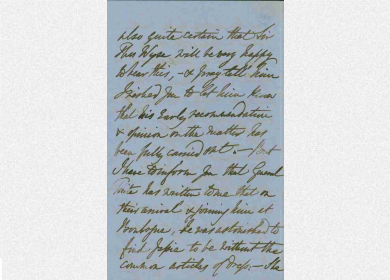 also quite certain that Sir
Thos Wyse will be very happy
to hear this, - & pray tell him
I wished you to let him know
that his early recommendation
& opinion on the matter has
been fully carried out. - But
I have to inform you that
has written to me that on
their arrival & joining him at
he was astonished to
find to be without the
common articles of - She